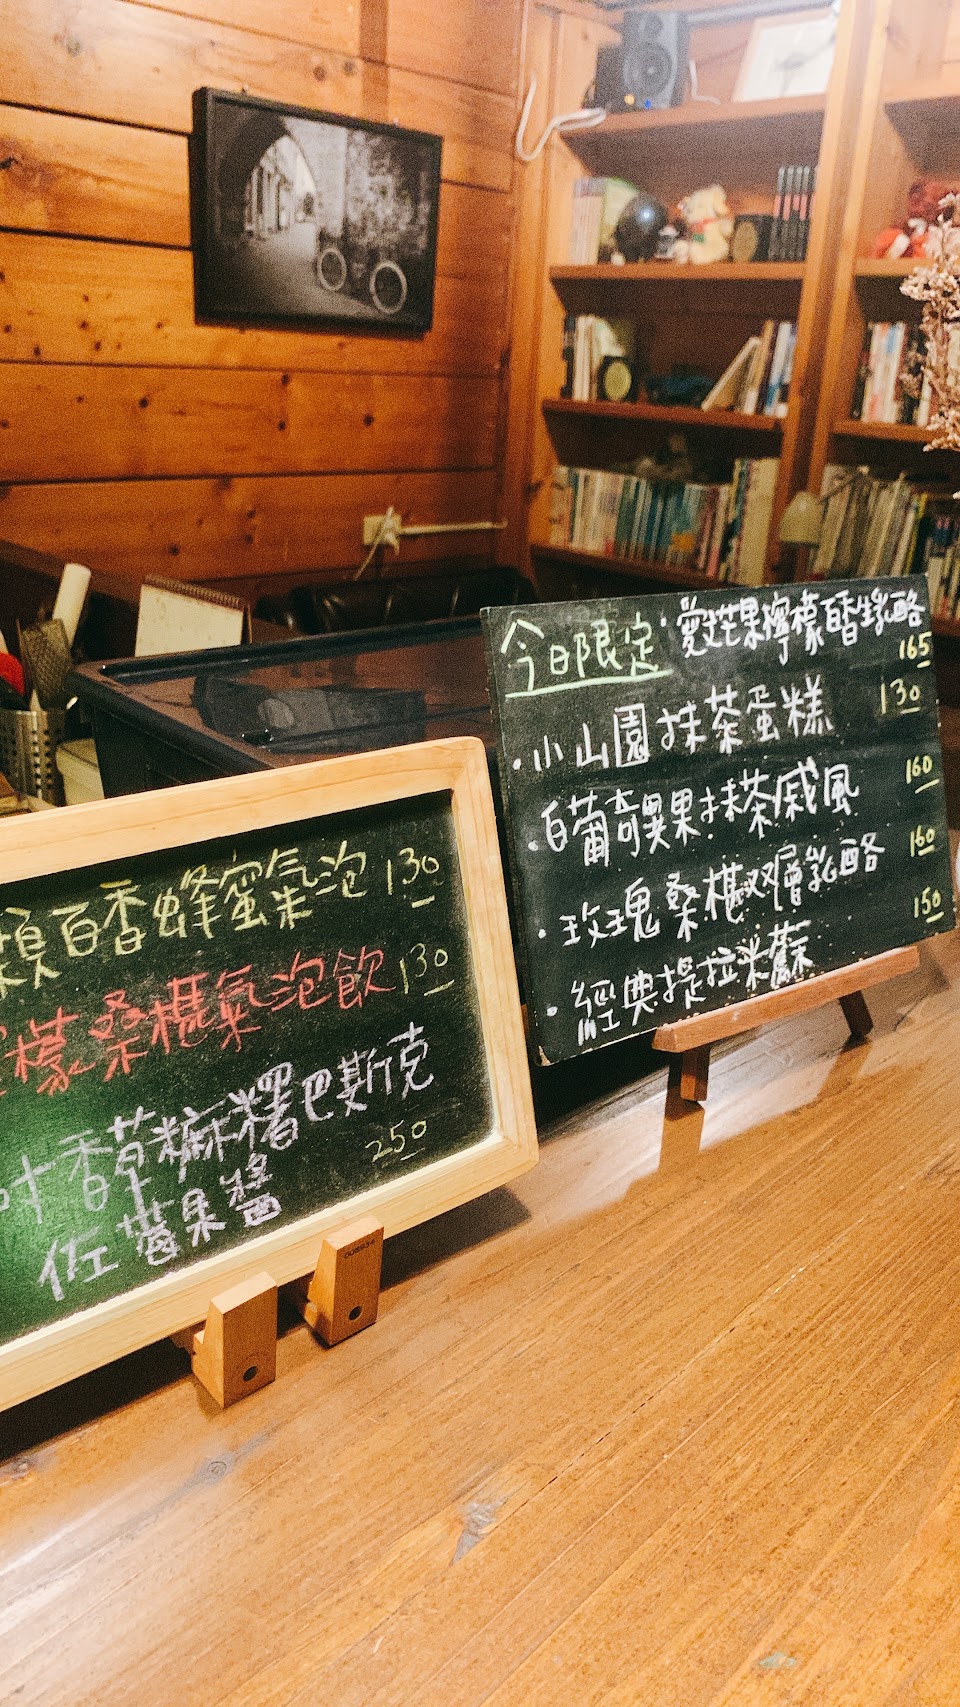 百香蜂蜜氣泡 130
檬桑椹氣泡飲 130
香草麻糬巴斯克
250
佐莓果醬
008934
今日限定 · 愛文芒果檸檬百香生乳酪
165
· 小山園抹茶蛋糕 130
· 白葡奇異果抹茶戚風 160
· 玫瑰桑椹双層乳酪 160
· 經典提拉米蘇 150